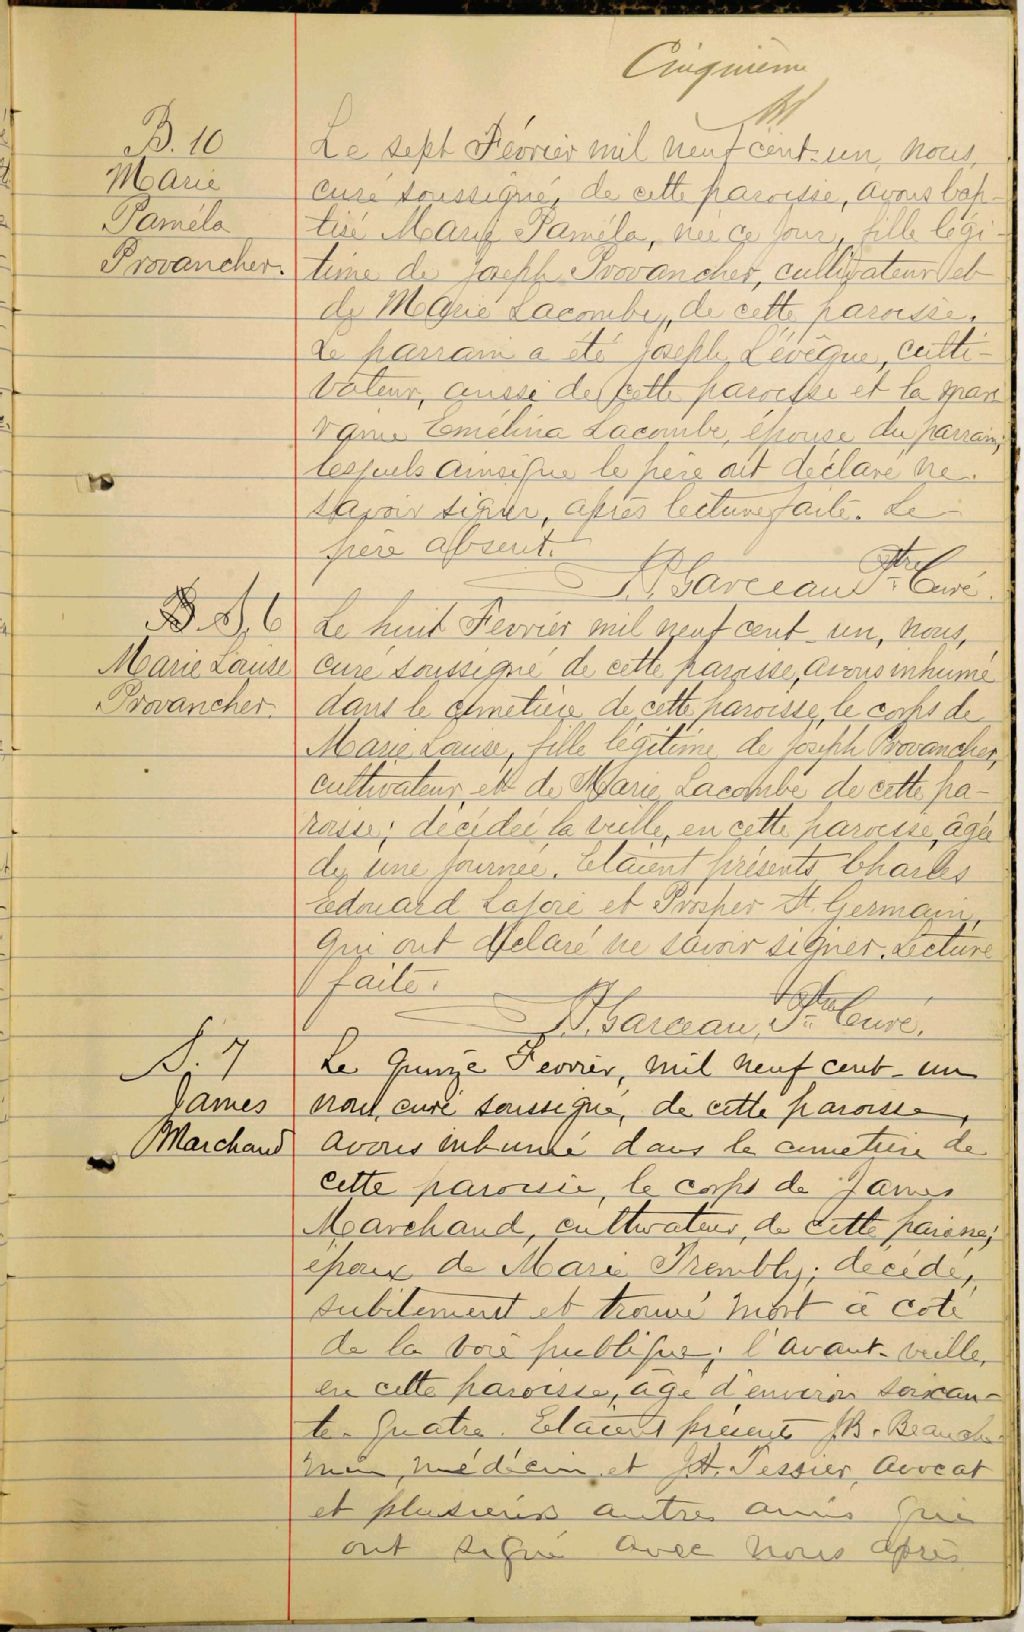 Cinquième
B. 10
Marie
Paméla
Provancher.
Le sept Février mil neuf cent-un, nous,
curé soussigné, de cette paroisse, avons bap-
tisé Marie Paméla, née ce jour, fille légi-
time de Joseph Provancher, cultivateur et
de Marie Lacombe, de cette paroisse.
Le parrain a été Joseph Lévêque, culti-
vateur, aussi de cette paroisse et la mar-
raine Emélina Lacombe, épouse du parrain,
lesquels ainsi que le père ont déclaré ne
savoir signer, après lecture faite. Le
père absent.
Garceau Ptre Curé.
S. 6
Marie Louise
Provancher.
Le huit Février mil neuf cent-un, nous,
curé soussigné de cette paroisse, avons inhumé
dans le cimetière de cette paroisse, le corps de
Marie Louise, fille légitime de Joseph Provancher,
cultivateur et de Marie Lacombe de cette pa-
roisse; décédée la veille, en cette paroisse, âgée
de une journée. Etaient présents Charles
Edouard et Prosper St. Germain,
qui ont déclaré ne savoir signer. Lecture
faite.
Garceau, Ptre Curé.
S. 7
James
Marchand
Le quinze Fevrier, mil neuf cent-un
nous, curé soussigné, de cette paroisse,
avons inhumé dans le cimetière de
cette paroisse, le corps de James
Marchand, cultivateur, de cette paroisse;
époux de Marie Trembly; décédé,
subitement et trouvé mort à coté
de la voie publique; l'avant-veille,
en cette paroisse, âgé d'environ soixan-
te-quatre. Etaient présents J.B. Beauche-
min, médecin et J.H. Tessier, avocat
et plusieurs autres amis qui
ont signé avec nous après